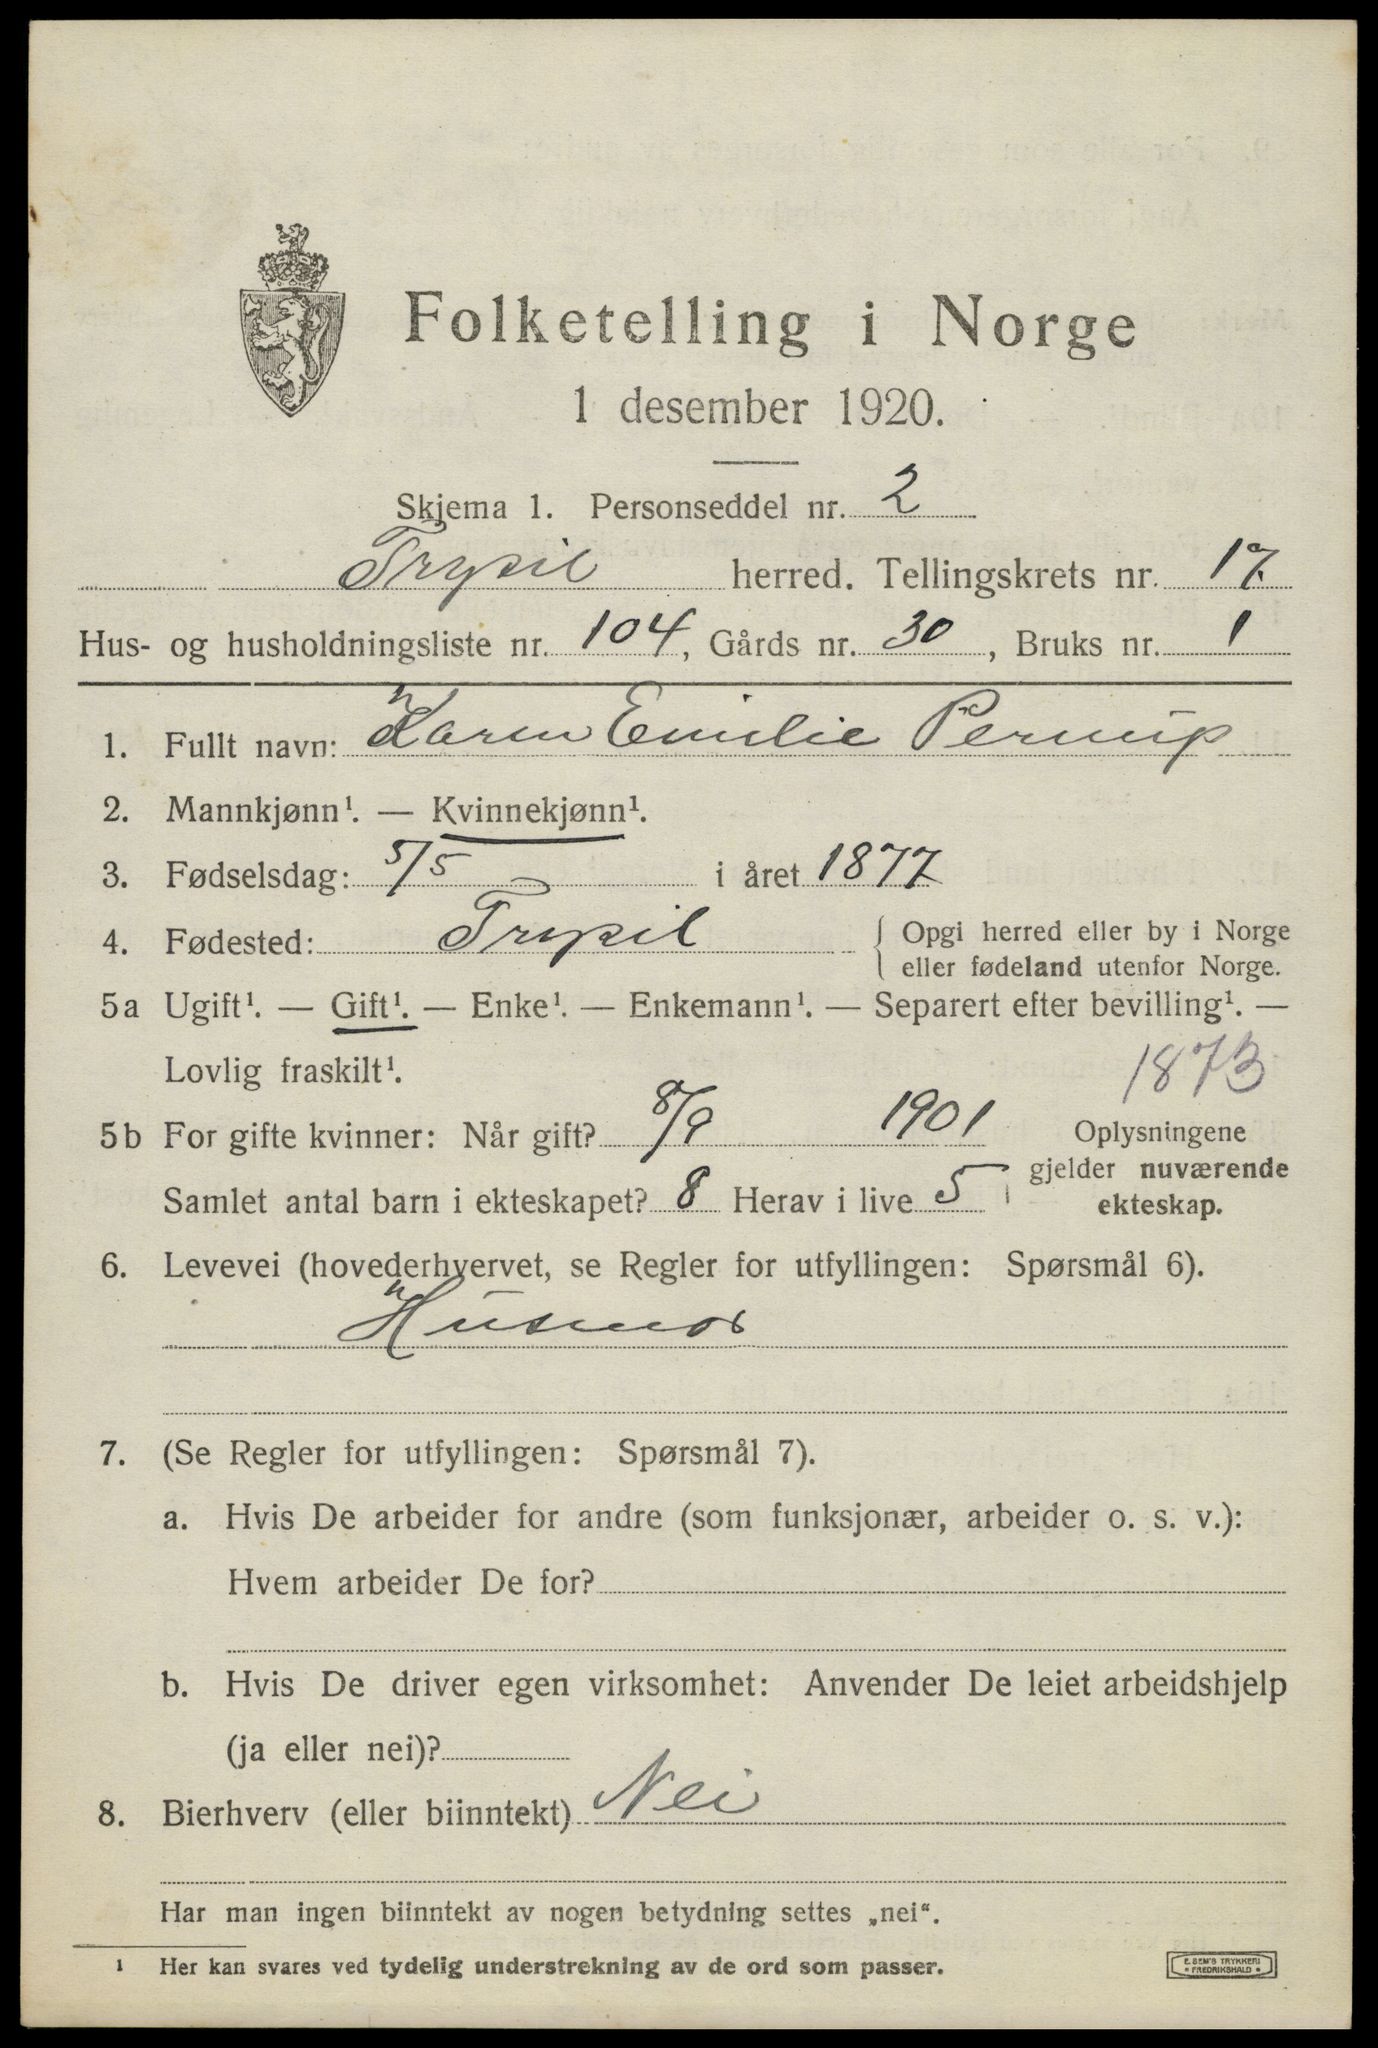 Folketelling i Norge
1 desember 1920.
Skjema 1. Personseddel nr. 2
Trysil herred. Tellingskrets nr. 17.
Hus- og husholdningsliste nr. 104, Gårds nr. 30, Bruks nr. 1
1. Fullt navn: Karen Emilie Pernup
2. Mannkjønn¹. — Kvinnekjønn¹.
3. Fødselsdag: 5/5 i året 1877
4. Fødested: Trysil { Opgi herred eller by i Norge
eller fødeland utenfor Norge.
5a Ugift¹. — Gift¹. — Enke¹. — Enkemann¹. — Separert efter bevilling¹. —
Lovlig fraskilt¹. 1873
5b For gifte kvinner: Når gift? 8/9 1901 Oplysningene
gjelder nuværende
Samlet antal barn i ekteskapet? 8 Herav i live 5 ekteskap.
6. Levevei (hovederhvervet, se Regler for utfyllingen: Spørsmål 6).
Husmor
7. (Se Regler for utfyllingen: Spørsmål 7).
a. Hvis De arbeider for andre (som funksjonær, arbeider o. s. v.):
Hvem arbeider De for?
b. Hvis De driver egen virksomhet: Anvender De leiet arbeidshjelp
(ja eller nei)?
8. Bierhverv (eller biinntekt) Nei
Har man ingen biinntekt av nogen betydning settes „nei".
¹ Her kan svares ved tydelig understrekning av de ord som passer.
E. SEM'S TRYKKERI
• FREDRIKSHALD •